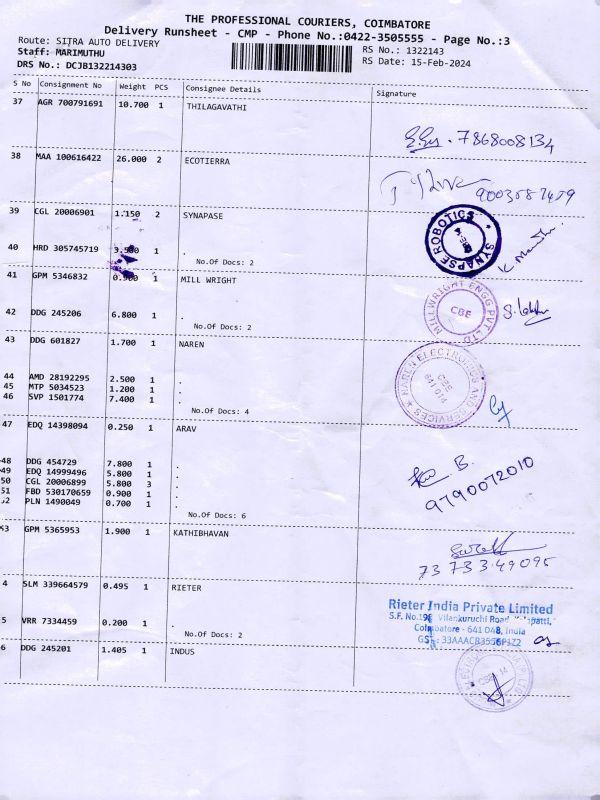 THE PROFESSIONAL COURIERS, COIMBATORE
Delivery Runsheet - CMP - Phone No.:0422-3505555 - Page No.:3
Route: SITRA AUTO DELIVERY
RS No.: 1322143
Staff: MARIMUTHU
RS Date: 15-Feb-2024
DRS No.: DCJB132214303
S No Consignment No Weight PCS Consignee Details Signature
37 AGR 700791691 10.700 1 THILAGAVATHI
7868008134
38 MAA 100616422 26.000 2 ECOTIERRA
39 CGL 20006901 1.150 2 SYNAPASE
SYNAPSE ROBOTICS
40 HRD 305745719 1 .
No.Of Docs: 2
41 GPM 5346832 1 MILL WRIGHT
MILLWRIGHT ENGG PVT LTD
CBE
42 DDG 245206 6.800 1 .
No.Of Docs: 2
43 DDG 601827 1.700 1 NAREN
NAREN ELECTRONICS AND SERVICES
CBE
641 014
44 AMD 28192295 2.500 1 .
45 MTP 5034523 1.200 1 .
46 SVP 1501774 7.400 1 .
No.Of Docs: 4
47 EDQ 14398094 0.250 1 ARAV
48 DDG 454729 7.800 1 .
49 EDQ 14999496 5.800 1 .
50 CGL 20006899 5.800 3 .
51 FBD 530170659 0.900 1 .
52 PLN 1490049 0.700 1 .
No.Of Docs: 6
B.
9790072010
53 GPM 5365953 1.900 1 KATHIBHAVAN
73733 49095
4 SLM 339664579 0.495 1 RIETER
Rieter India Private Limited
S.F. No.196 Vilankuruchi Road
Coimbatore - 641 048, India
5 VRR 7334459 0.200 1 .
No.Of Docs: 2
6 DDG 245201 1.405 1 INDUS